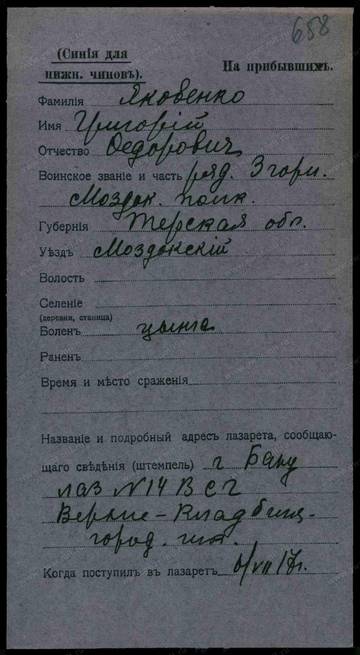 658
(Синія для
нижн. чиновъ).
На прибывшихъ.
Фамилія Яковенко
Имя Григорій
Отчество Ѳедоровичъ
Воинское званіе и часть ряд. 3 горн.
Моздок. полк.
Губернія Терская обл.
Уѣздъ Моздокскій
Волость
Селеніе
(деревня, станица)
Боленъ цынга
Раненъ
Время и мѣсто сраженія
Названіе и подробный адресъ лазарета, сообщаю-
щаго свѣдѣнія (штемпель) г Баку
лаз N14 В С Г
Верхне-Кладбищ-
город.
Когда поступилъ въ лазаретъ 6/VII 17г.